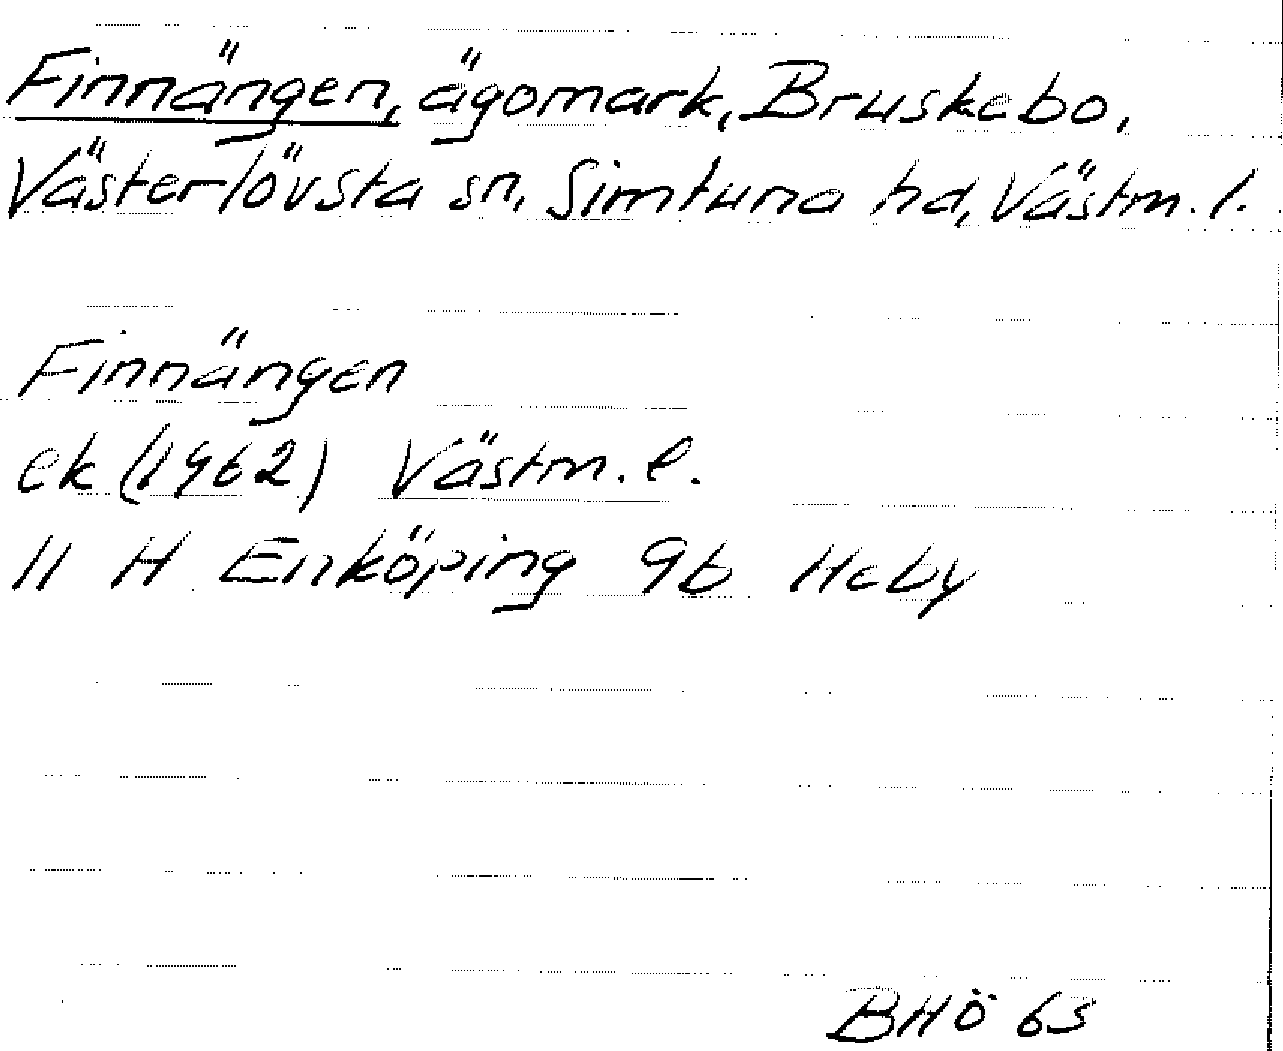 Finnängen, ägomark, Bruskebo,
Västerlövsta sn, Simtuna hd, Västm. l.
Finnängen
ek (1962) Västm. l.
11 H Enköping 9b Heby
BHÖ 63